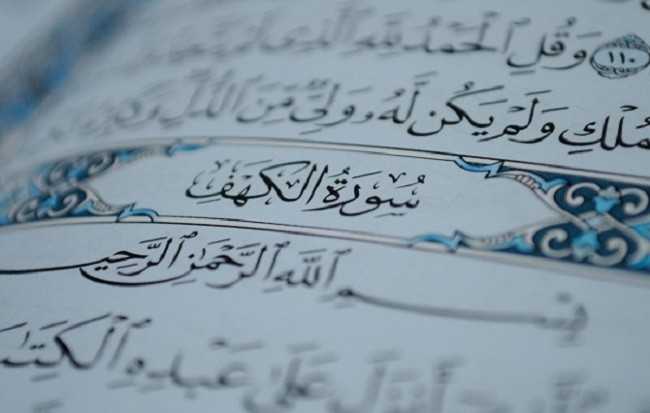 ١١٠ وَقُلِ ٱلْحَمْدُ لِلَّهِ ٱلَّذِى
ٱلْمُلْكِ وَلَمْ يَكُن لَّهُۥ وَلِىٌّ مِّنَ ٱلذُّلِّ وَكَبِّرْهُ
سُورَةُ الْكَهْفِ
بِسْمِ ٱللَّهِ ٱلرَّحْمَٰنِ ٱلرَّحِيمِ
أَنزَلَ عَلَىٰ عَبْدِهِ ٱلْكِتَٰبَ